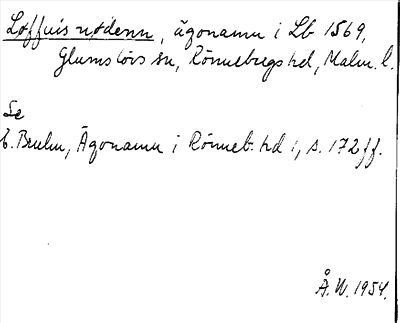 Loffuis nødenn, ägonamn i Lb 1569,
Glumslövs sn, Rönnebergs hd, Malm. l.
Se
E. Bruhn, Ägonamn i Rönneb. hd 1, s. 172 ff.
Å. W. 1954.